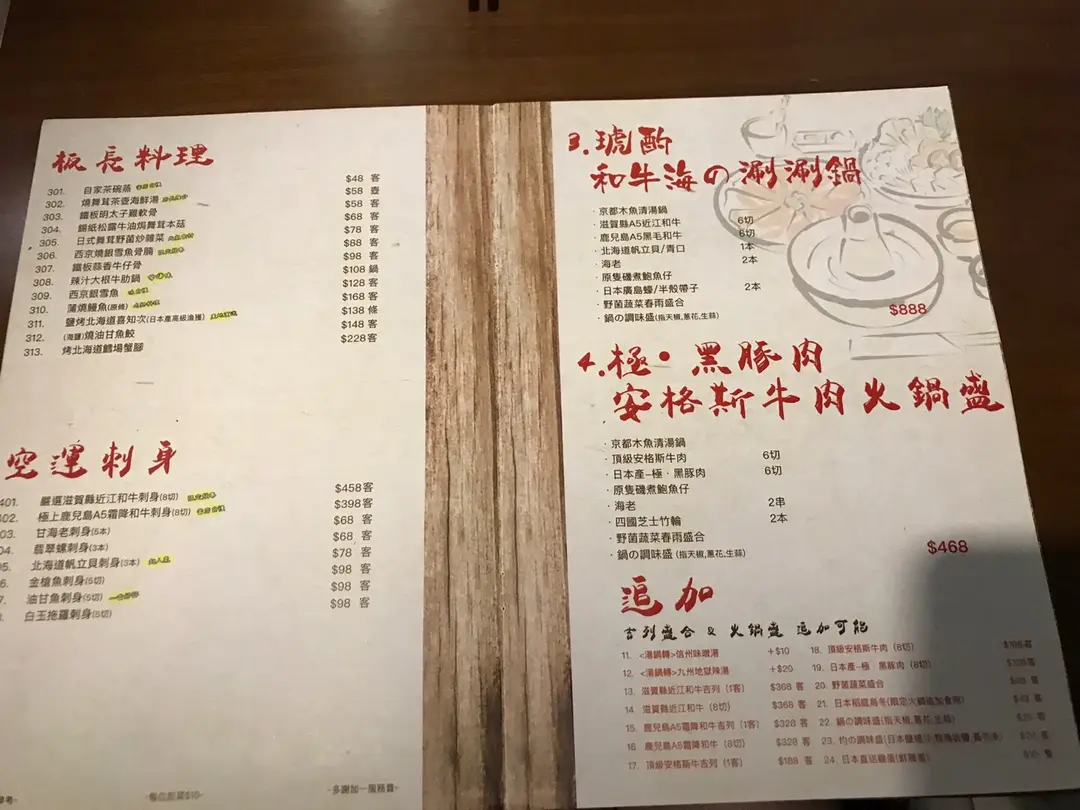 板長料理
301. 自家茶碗蒸 $48 客
302. 燒舞茸茶壺海鮮湯 $58 壺
303. 鐵板明太子雞軟骨 $58 客
304. 錫紙松露牛油焗舞茸本菇 $68 客
305. 日式舞茸野菌炒雜菜 $78 客
306. 西京燒銀雪魚骨腩 $88 客
307. 鐵板蒜香牛仔骨 $98 客
308. 辣汁大根牛肋鍋 $108 鍋
309. 西京銀雪魚 $128 客
310. 蒲燒鰻魚(原條) $168 客
311. 鹽烤北海道喜知次(日本產高級漁獲) $138 條
312. (海鹽)燒油甘魚鮫 $148 客
313. 烤北海道鱈場蟹腳 $228客
空運刺身
401. 嚴選滋賀縣近江和牛刺身(8切) $458客
402. 極上鹿兒島A5霜降和牛刺身(8切) $398客
03. 甘海老刺身(5本) $68 客
04. 翡翠螺刺身(3本) $68 客
5. 北海道帆立貝刺身(3本) $78 客
6. 金槍魚刺身(5切) $98 客
7. 油甘魚刺身(5切) $98 客
白玉拖羅刺身(5切) $98 客
-多謝加一服務費-
3.琥酌
和牛海の涮涮鍋
·京都木魚清湯鍋
·滋賀縣A5近江和牛 6切
·鹿兒島A5黑毛和牛 6切
·北海道帆立貝/青口 1本
·海老 2本
·原隻磯煮鮑魚仔
·日本廣島蠔/半殼帶子 2本
·野菌蔬菜春雨盛合
·鍋の調味盛(指天椒,蔥花,生蒜)
$888
4.極·黑豚肉
安格斯牛肉火鍋盛
·京都木魚清湯鍋
·頂級安格斯牛肉 6切
·日本產-極·黑豚肉 6切
·原隻磯煮鮑魚仔
·海老 2串
·四國芝士竹輪 2本
·野菌蔬菜春雨盛合
·鍋の調味盛 (指天椒,蔥花,生蒜)
$468
追加
吉列盛合 & 火鍋盛 追加可能
11. <湯鍋轉>信州味噌湯 +$10
12. <湯鍋轉>九州地獄辣湯 +$20
13. 滋賀縣近江和牛吉列 (1客) $368 客
14. 滋賀縣近江和牛 (8切) $368 客
15. 鹿兒島A5霜降和牛吉列 (1客) $328 客
16 鹿兒島A5霜降和牛 (8切) $328 客
17. 頂級安格斯牛吉列 (1客) $188 客
18. 頂級安格斯牛肉 (8切)
19. 日本產-極 黑豚肉 (8切)
20. 野菌蔬菜盛合
21. 日本稻庭烏冬
22. 鍋の調味盛(指天椒,蔥花,生蒜)
23.
24. 日本直送雞蛋